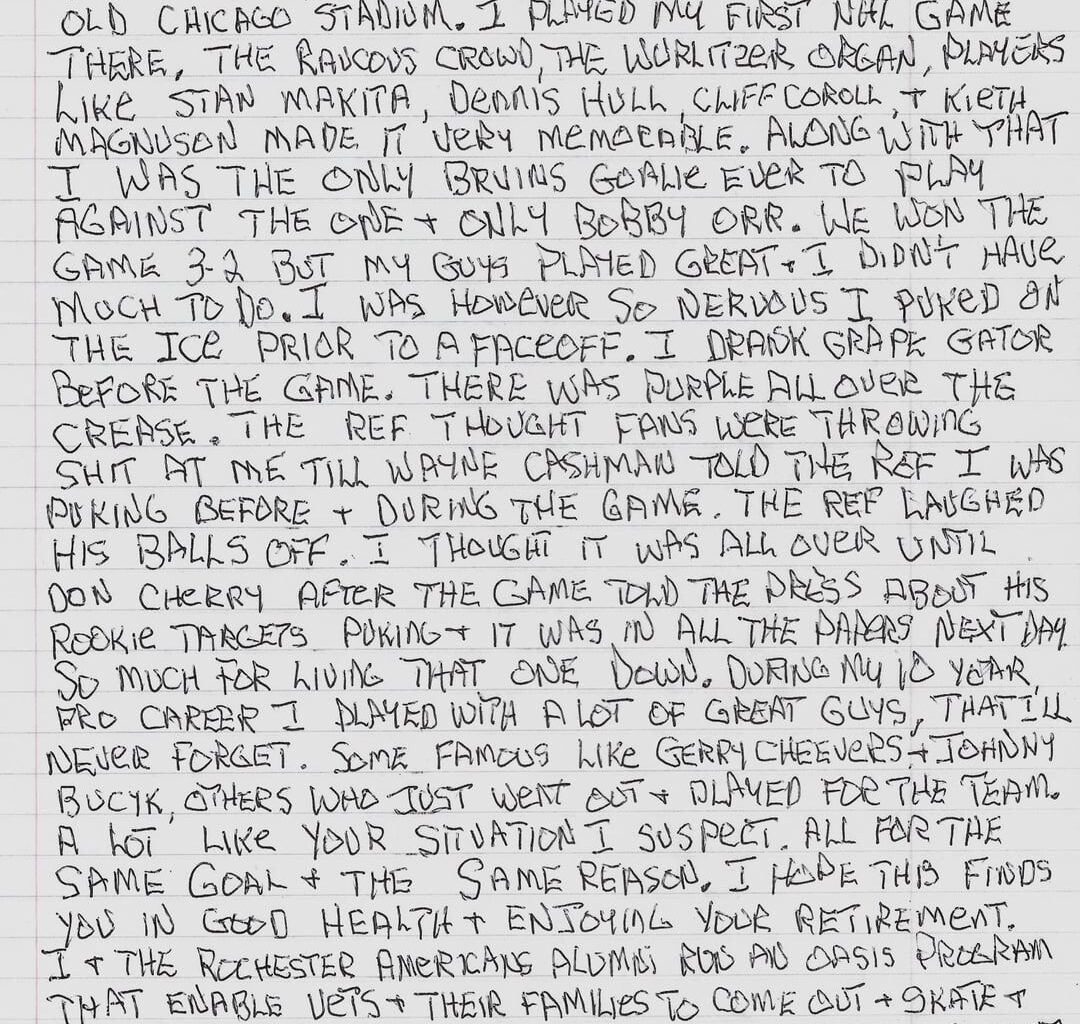 OLD CHICAGO STADIUM. I PLAYED MY FIRST NHL GAME
THERE, THE RAUCOUS CROWD, THE WURLITZER ORGAN, PLAYERS
LIKE STAN MAKITA, DENNIS HULL, CLIFF COROLL, + KIETH
MAGNUSON MADE IT VERY MEMORABLE. ALONG WITH THAT
I WAS THE ONLY BRUINS GOALIE EVER TO PLAY
AGAINST THE ONE + ONLY BOBBY ORR. WE WON THE
GAME 3-2 BUT MY GUYS PLAYED GREAT + I DIDN'T HAVE
MUCH TO DO. I WAS HOWEVER SO NERVOUS I PUKED ON
THE ICE PRIOR TO A FACEOFF. I DRANK GRAPE GATOR
BEFORE THE GAME. THERE WAS PURPLE ALL OVER THE
CREASE. THE REF THOUGHT FANS WERE THROWING
SHIT AT ME TILL WAYNE CASHMAN TOLD THE REF I WAS
PUKING BEFORE + DURING THE GAME. THE REF LAUGHED
HIS BALLS OFF. I THOUGHT IT WAS ALL OVER UNTIL
DON CHERRY AFTER THE GAME TOLD THE PRESS ABOUT HIS
ROOKIE TARGETS PUKING + IT WAS IN ALL THE PAPERS NEXT DAY.
SO MUCH FOR LIVING THAT ONE DOWN. DURING MY 10 YEAR
PRO CAREER I PLAYED WITH A LOT OF GREAT GUYS, THAT I'LL
NEVER FORGET. SOME FAMOUS LIKE GERRY CHEEVERS + JOHNNY
BUCYK, OTHERS WHO JUST WENT OUT + PLAYED FOR THE TEAM.
A LOT LIKE YOUR SITUATION I SUSPECT. ALL FOR THE
SAME GOAL + THE SAME REASON. I HOPE THIS FINDS
YOU IN GOOD HEALTH + ENJOYING YOUR RETIREMENT.
I + THE ROCHESTER AMERICANS ALUMNI RUN AN OASIS PROGRAM
THAT ENABLE VETS + THEIR FAMILIES TO COME OUT + SKATE +